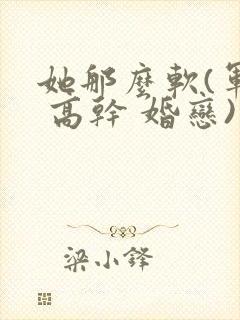 她那麼軟(軍
高幹 婚戀)
梁小鋒